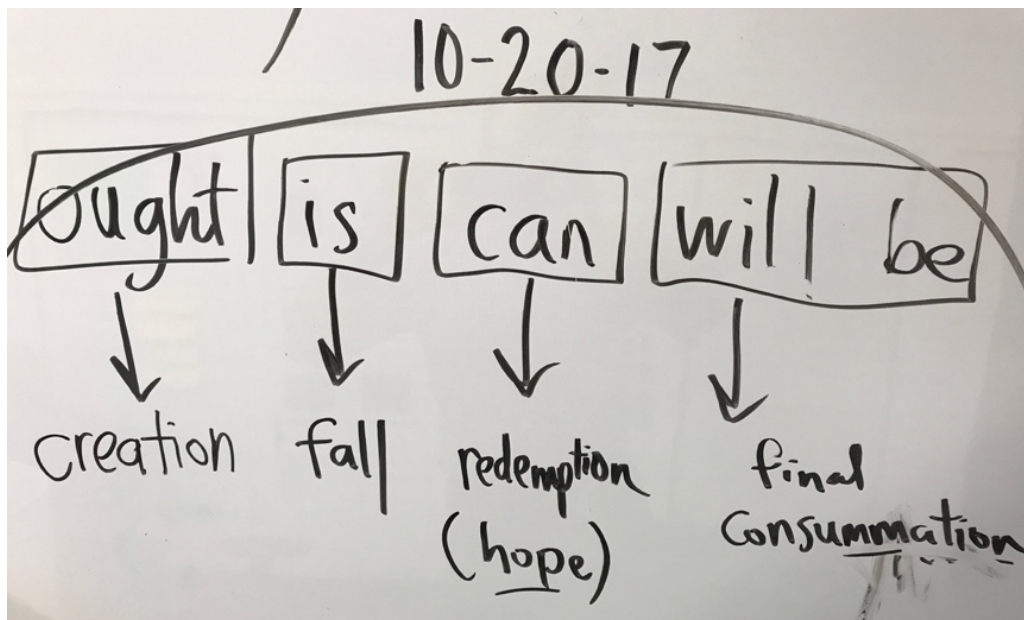 10-20-17
ought is can will be
creation fall redemption final
(hope) consummation